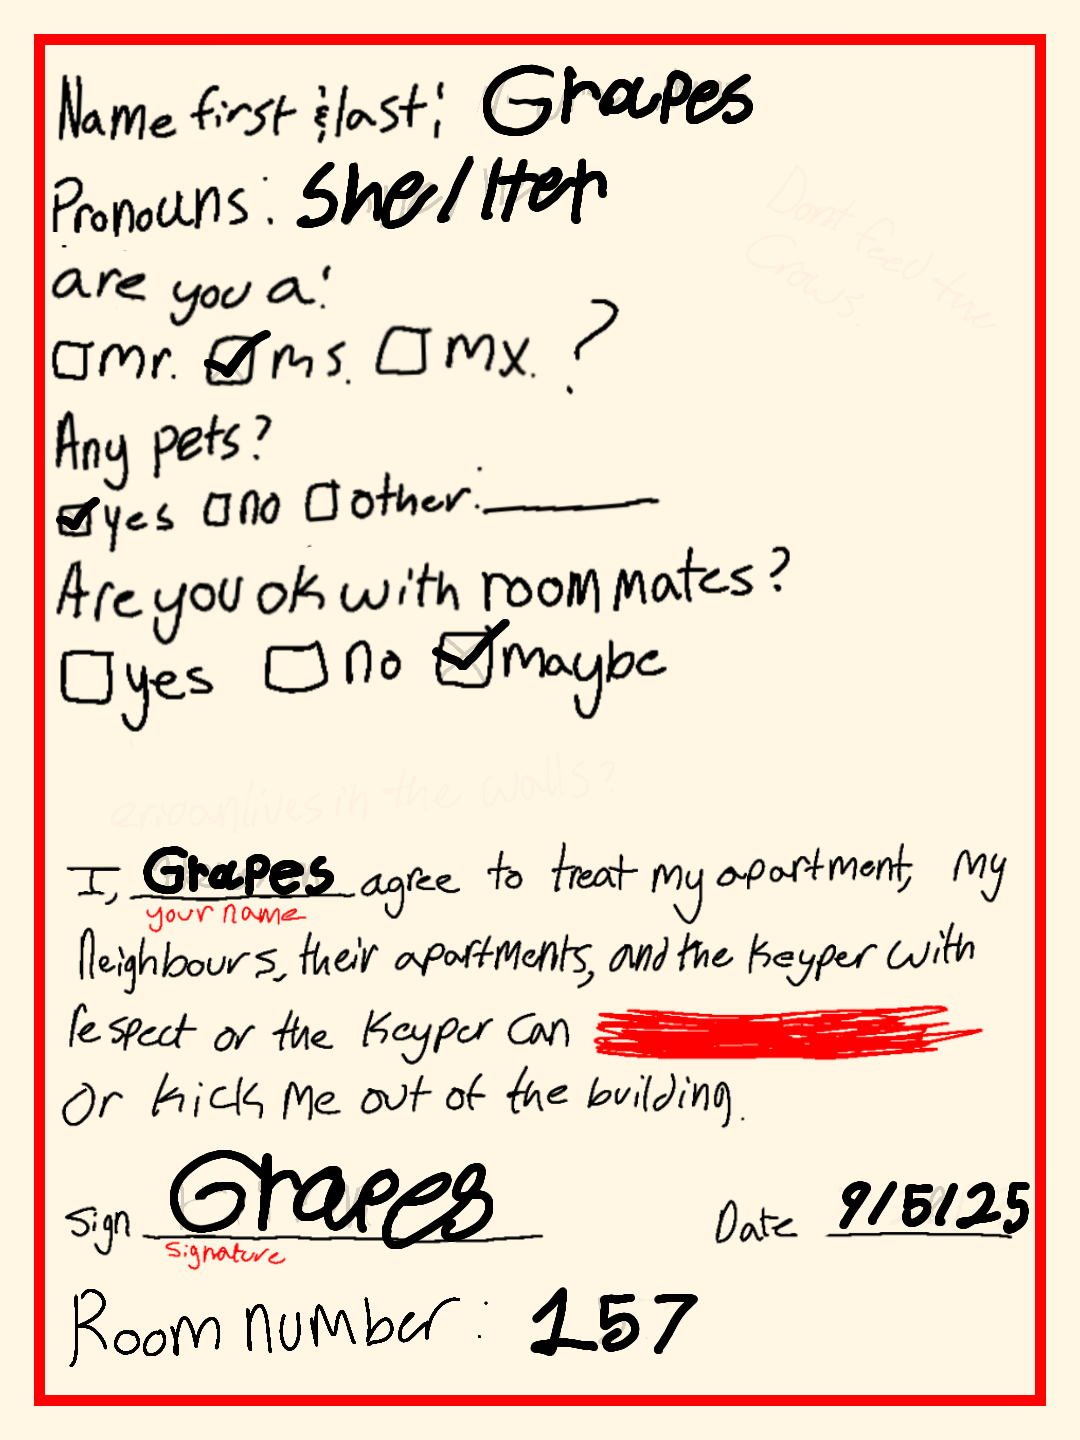 Name first & last: Grapes
Pronouns: She/Her
Dont feed the
Crows.
are you a:
mr. ms. mx. ?
Any pets?
yes no other:
Are you ok with roommates?
yes no maybe
lives in the walls?
I, Grapes agree to treat my apartment, my
your name
Neighbours, their apartments, and the Keyper with
respect or the Keyper Can
Or kick me out of the building.
Sign Grapes Date 9/5/25
signature
Room number: 157